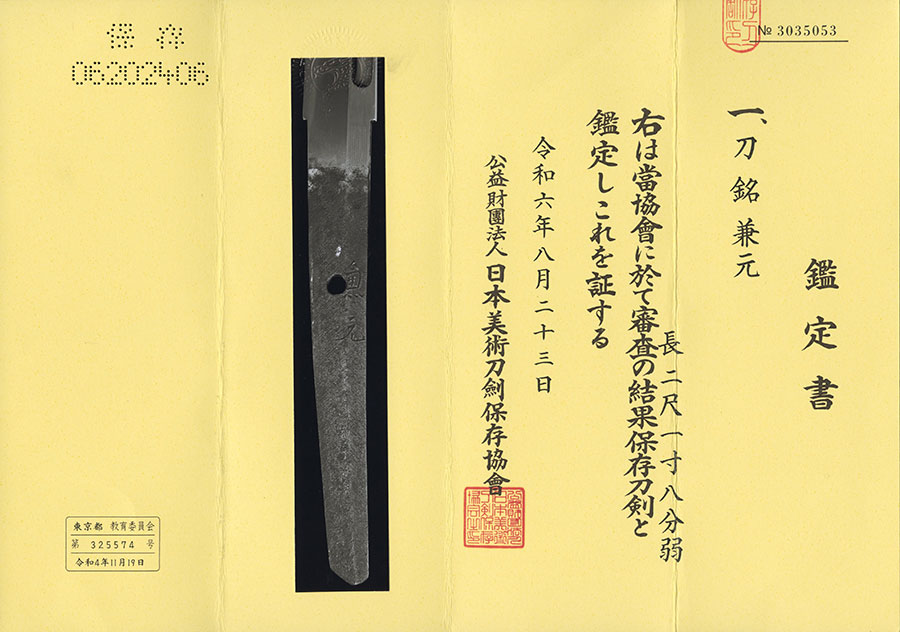 № 3035053
鑑定書
一、刀 銘 兼元
長二尺一寸八分弱
右は當協會に於て審査の結果保存刀剣と
鑑定しこれを証する
令和六年八月二十三日
公益財團法人 日本美術刀劍保存協會
兼元
保存
06202406
東京都 教育委員会
第 325574 号
令和4年11月19日